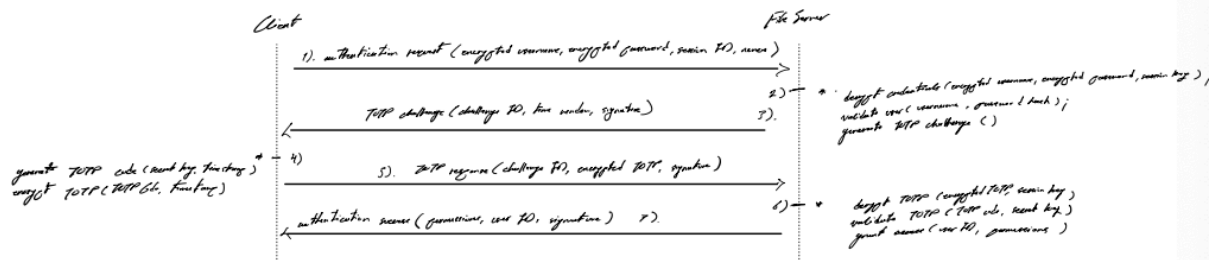 Client
File Server
1). authentication request (encrypted username, encrypted password, session ID, nonce)
2) - * decrypt credentials (encrypted username, encrypted password, session key);
validate user (username, password hash);
generate TOTP challenge ()
TOTP challenge (challenge ID, time window, signature) 3).
* - 4)
generate TOTP code (secret key, timestamp)
encrypt TOTP (TOTP Code,
5). TOTP response (challenge ID, encrypted TOTP, signature)
6) - * decrypt TOTP (encrypted TOTP, session key)
validate TOTP (TOTP code, secret key)
grant access (user ID, permissions)
authentication success (permissions, user ID, signature) 7).